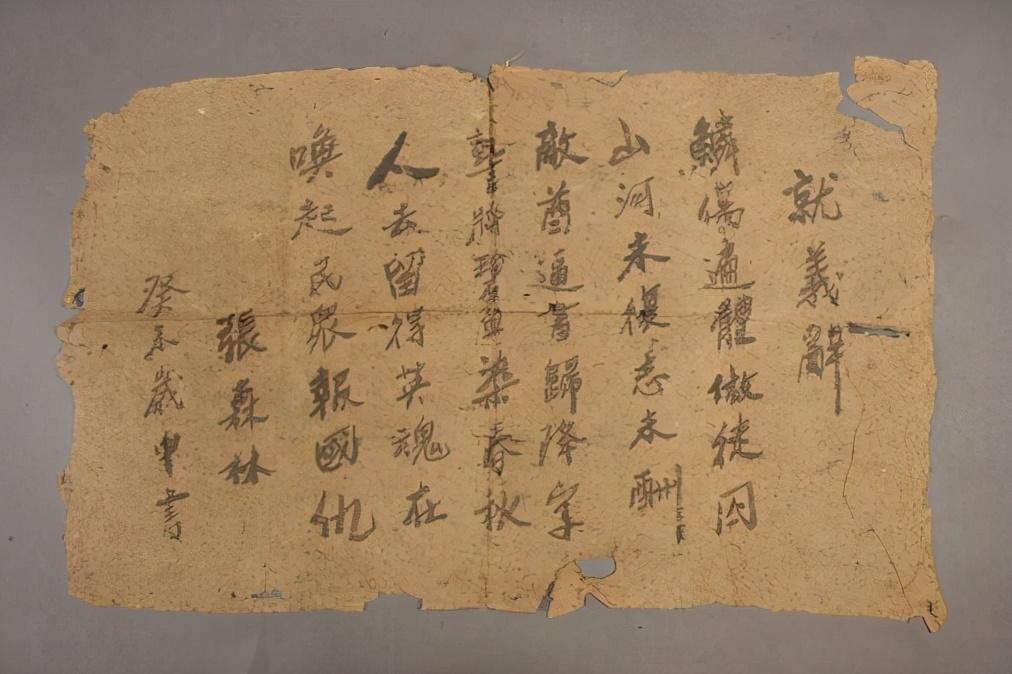 就義辭
鱗傷遍體做徒囚
山河未復志未酬
敵酋逼書歸降字
將珍染春秋
人去留得英魂在
喚起民眾報國仇
張林
癸未歲中書